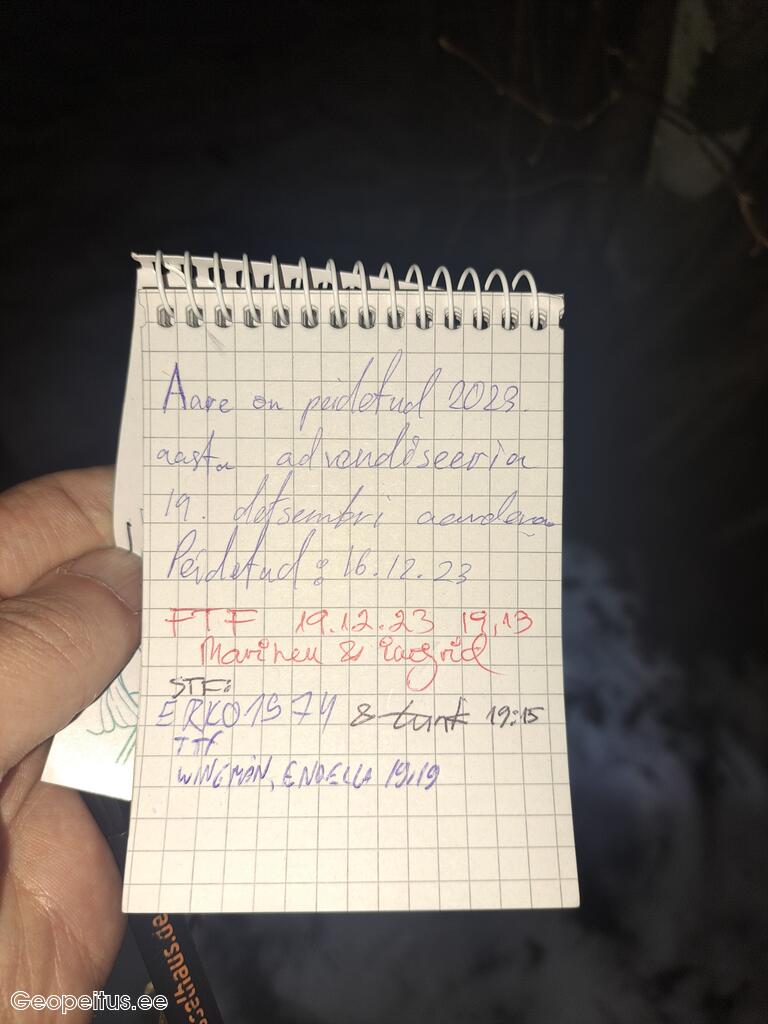 Aare on peidetud 2023.
aasta advendiseeria
19. detsembri aardena
Peidetud: 16.12.23
FTF 19.12.23 19,13
Marineu &
STF:
ERKO1974 & tunk 19:15
TTF
WINGMAN, ENDELLA 19,19
sselhaus.de
Geopeitus.ee